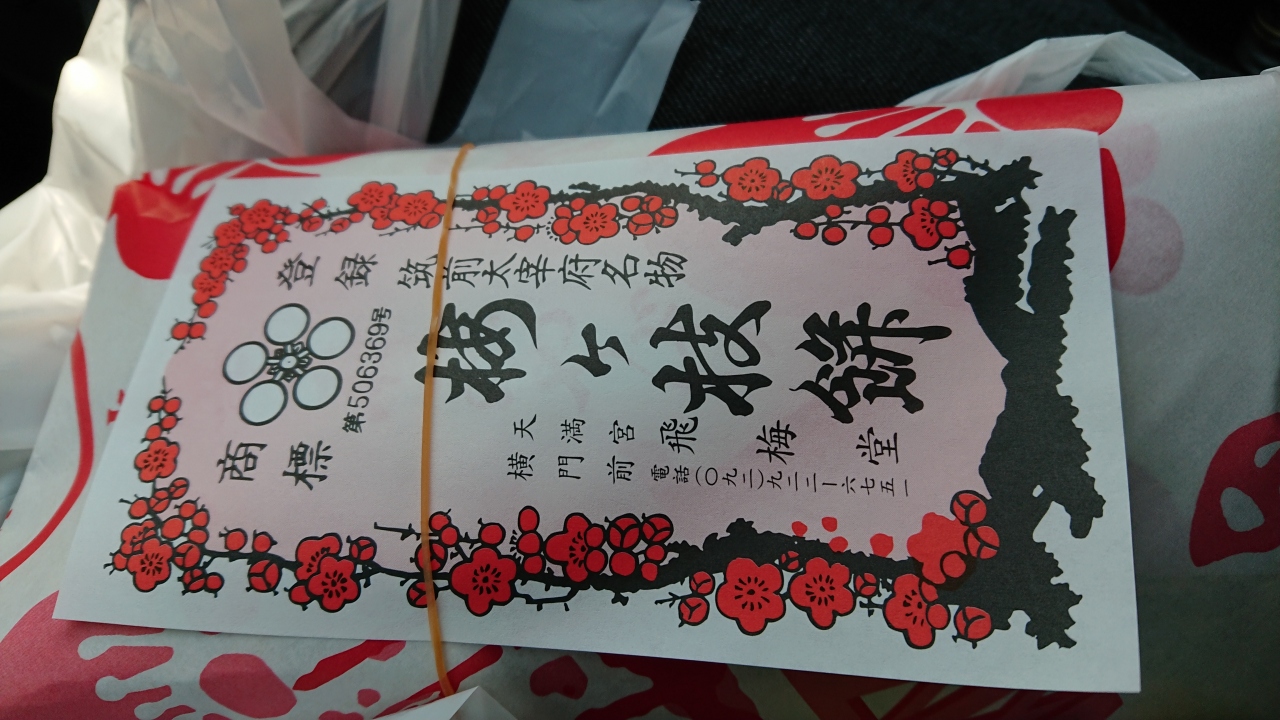 登録
商標
第506369号
筑前太宰府名物
梅ヶ枝餅
天満宮
横門前
飛梅堂
電話(〇九二)九二二ー六七五一